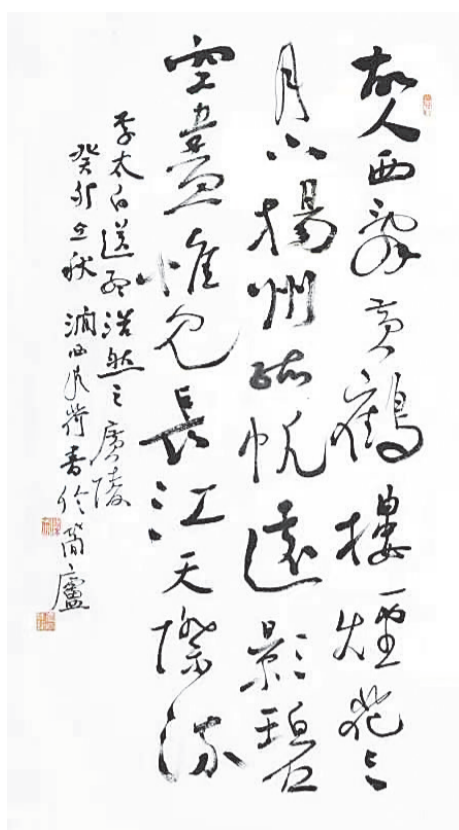 故人西辭黃鶴樓煙花三
月下揚州孤帆遠影碧
空盡惟見長江天際流
李太白送孟浩然之廣陵
癸卯立秋 荷書於廬